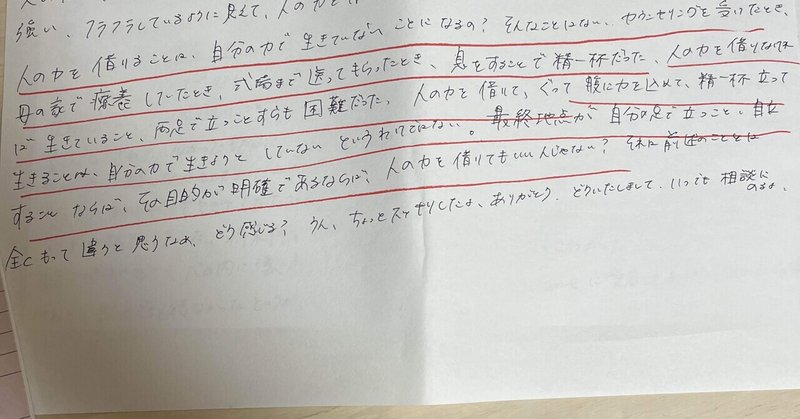 強い、フラフラしているように見えて、人の力を
人の力を借りることは、自分の力で生きていないことになるの？そんなことはない。カウンセリングを受けたとき、
母の家で療養していたとき、式場まで送ってもらったとき、息をすることで精一杯だった、人の力を借りなければ
ば生きていること、両足で立つことすらも困難だった、人の力を借りて、ぐって腹に力を込めて、精一杯立って
生きることは、自分の力で生きようとしていないというわけではない。最終地点が自分の足で立つこと、自立
することならば、その目的が明確であるならば、人の力を借りてもいいんじゃない？それは前述のこととは
全くもって違うと思うなあ、どう感じる？うん、ちょっとスッキリしたよ、ありがとう。どういたしまして、いつでも相談に
のるよ、